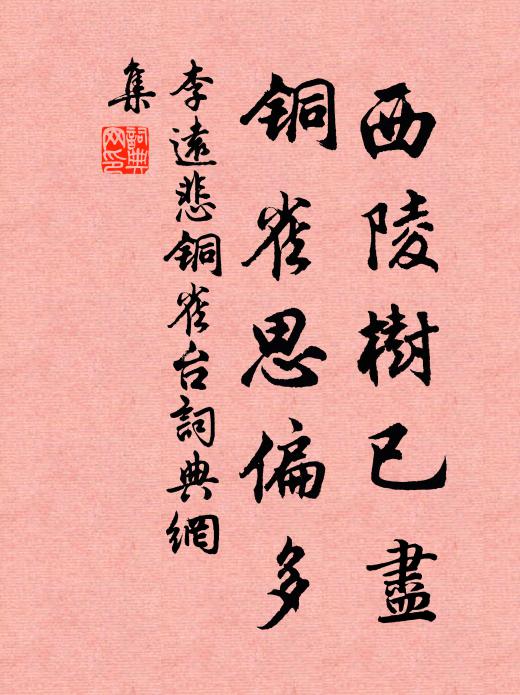 西陵樹已盡
銅雀思偏多
李遠悲銅雀台詞典網
集
詞典
网印